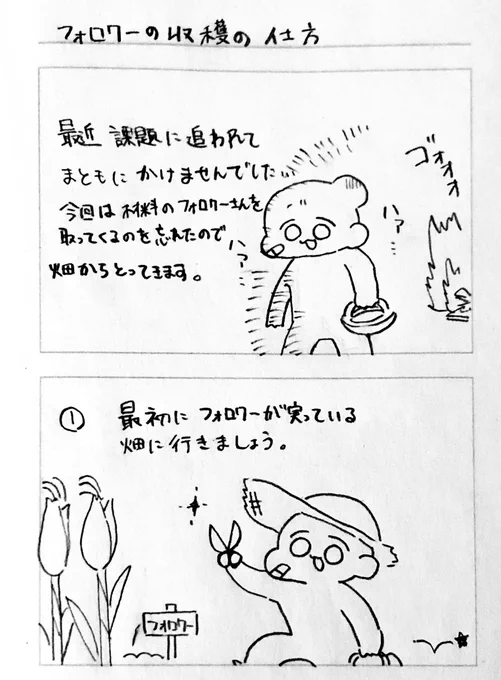 フォロワーの収穫の仕方
最近 課題に追われて
まともにかけませんでした…
今回は材料のフォロワーさんを
取ってくるのを忘れたので
畑からとってきます。
ハァ…
ハァ…
ゴォォォ
① 最初にフォロワーが実っている
畑に行きましょう。
フォロワー